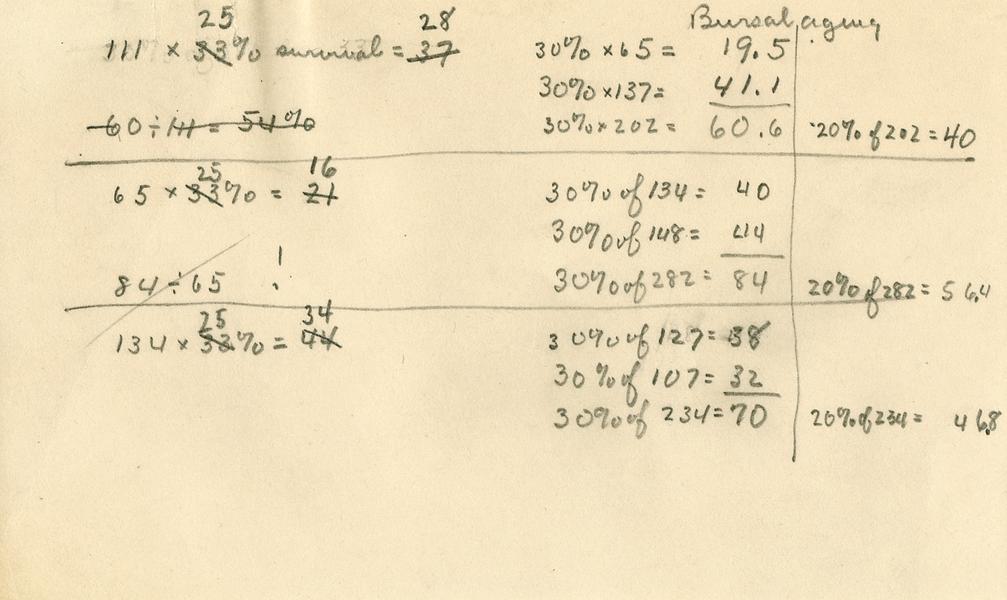 25 28 Bursal aging
111 × 33% survival = 37 30% × 65 = 19.5
30% × 137 = 41.1
60 ÷ 111 = 54% 30% × 202 = 60.6 20% of 202 = 40
25 16
65 × 33% = 21 30% of 134 = 40
30% of 148 = 44
84 ÷ 65 ! 30% of 282 = 84 20% of 282 = 56.4
25 34
134 × 33% = 44 30% of 127 = 38
30% of 107 = 32
30% of 234 = 70 20% of 234 = 46.8